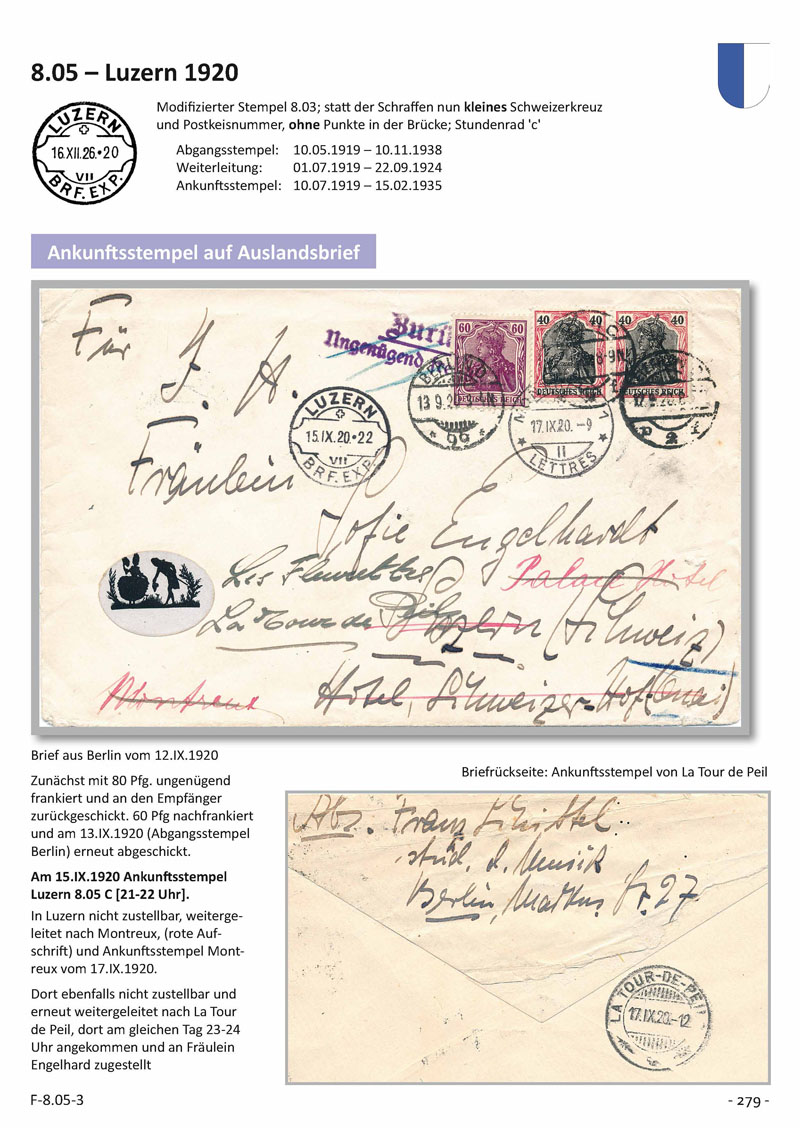 8.05 – Luzern 1920
Modifizierter Stempel 8.03; statt der Schraffen nun kleines Schweizerkreuz
und Postkeisnummer, ohne Punkte in der Brücke; Stundenrad 'c'
LUZERN
16.XII.26.•20
VII
BRF.EXP.
Abgangsstempel: 10.05.1919 – 10.11.1938
Weiterleitung: 01.07.1919 – 22.09.1924
Ankunftsstempel: 10.07.1919 – 15.02.1935
Ankunftsstempel auf Auslandsbrief
Für J. H.
Zurü
Ungenügend
60
DEUTSCHES REICH
40 40
DEUTSCHES REICH
40 40
DEUTSCHES REICH
LUZERN
15.IX.20•22
VII
BRF.EXP.
BERLIN
13.9.2
17.IX20.–9
II
LETTRES
Fräulein
Sofie Engelhardt
Les Fleurettes
Palace Hôtel
La Tour de Peilz
Luzern (Schweiz)
Montreux
Hôtel Schweizer-Hof
Brief aus Berlin vom 12.IX.1920
Zunächst mit 80 Pfg. ungenügend
frankiert und an den Empfänger
zurückgeschickt. 60 Pfg nachfrankiert
und am 13.IX.1920 (Abgangsstempel
Berlin) erneut abgeschickt.
Am 15.IX.1920 Ankunftsstempel
Luzern 8.05 C [21-22 Uhr].
In Luzern nicht zustellbar, weiterge-
leitet nach Montreux, (rote Auf-
schrift) und Ankunftsstempel Mont-
reux vom 17.IX.1920.
Dort ebenfalls nicht zustellbar und
erneut weitergeleitet nach La Tour
de Peil, dort am gleichen Tag 23-24
Uhr angekommen und an Fräulein
Engelhard zugestellt
Briefrückseite: Ankunftsstempel von La Tour de Peil
Abs. Franz
stud. d. Musik
Berlin, Markus Str. 27
LA TOUR-DE-PEIL
17.IX.20.–12
F-8.05-3
- 279 -